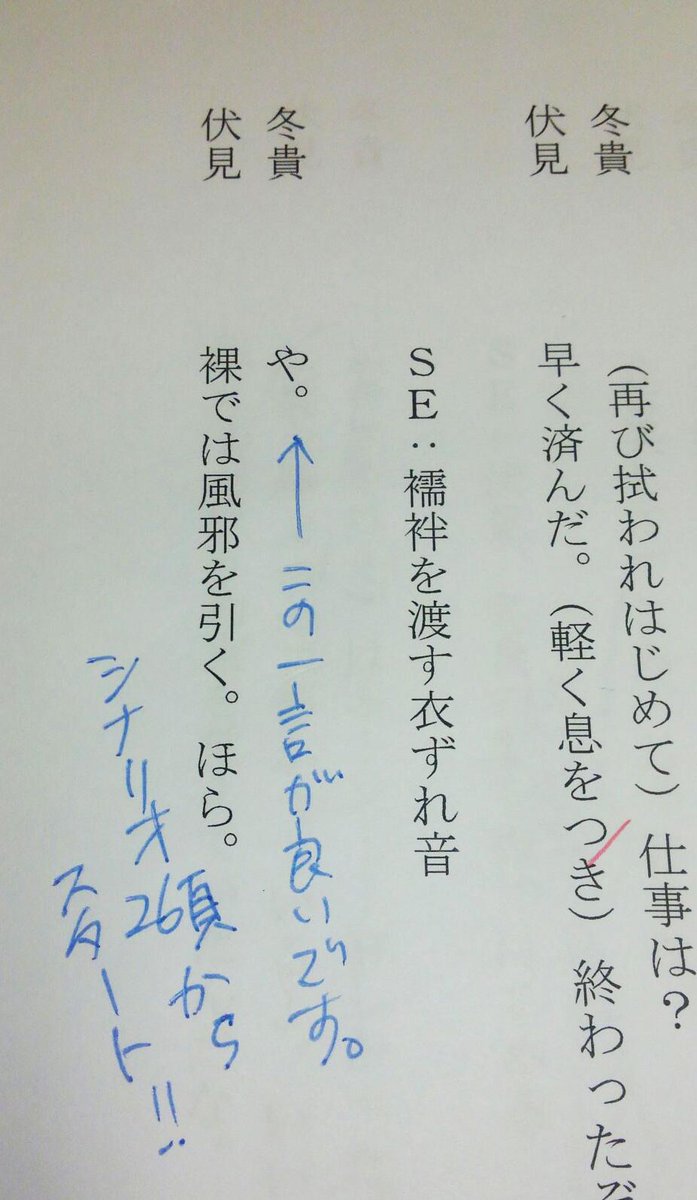 冬貴 (再び拭われはじめて) 仕事は?
伏見 早く済んだ。(軽く息をつき) 終わったぞ
SE:襦袢を渡す衣ずれ音
冬貴 や。 ↑ この一言が良いです。
伏見 裸では風邪を引く。 ほら。
シナリオ26頁から
スタート!!